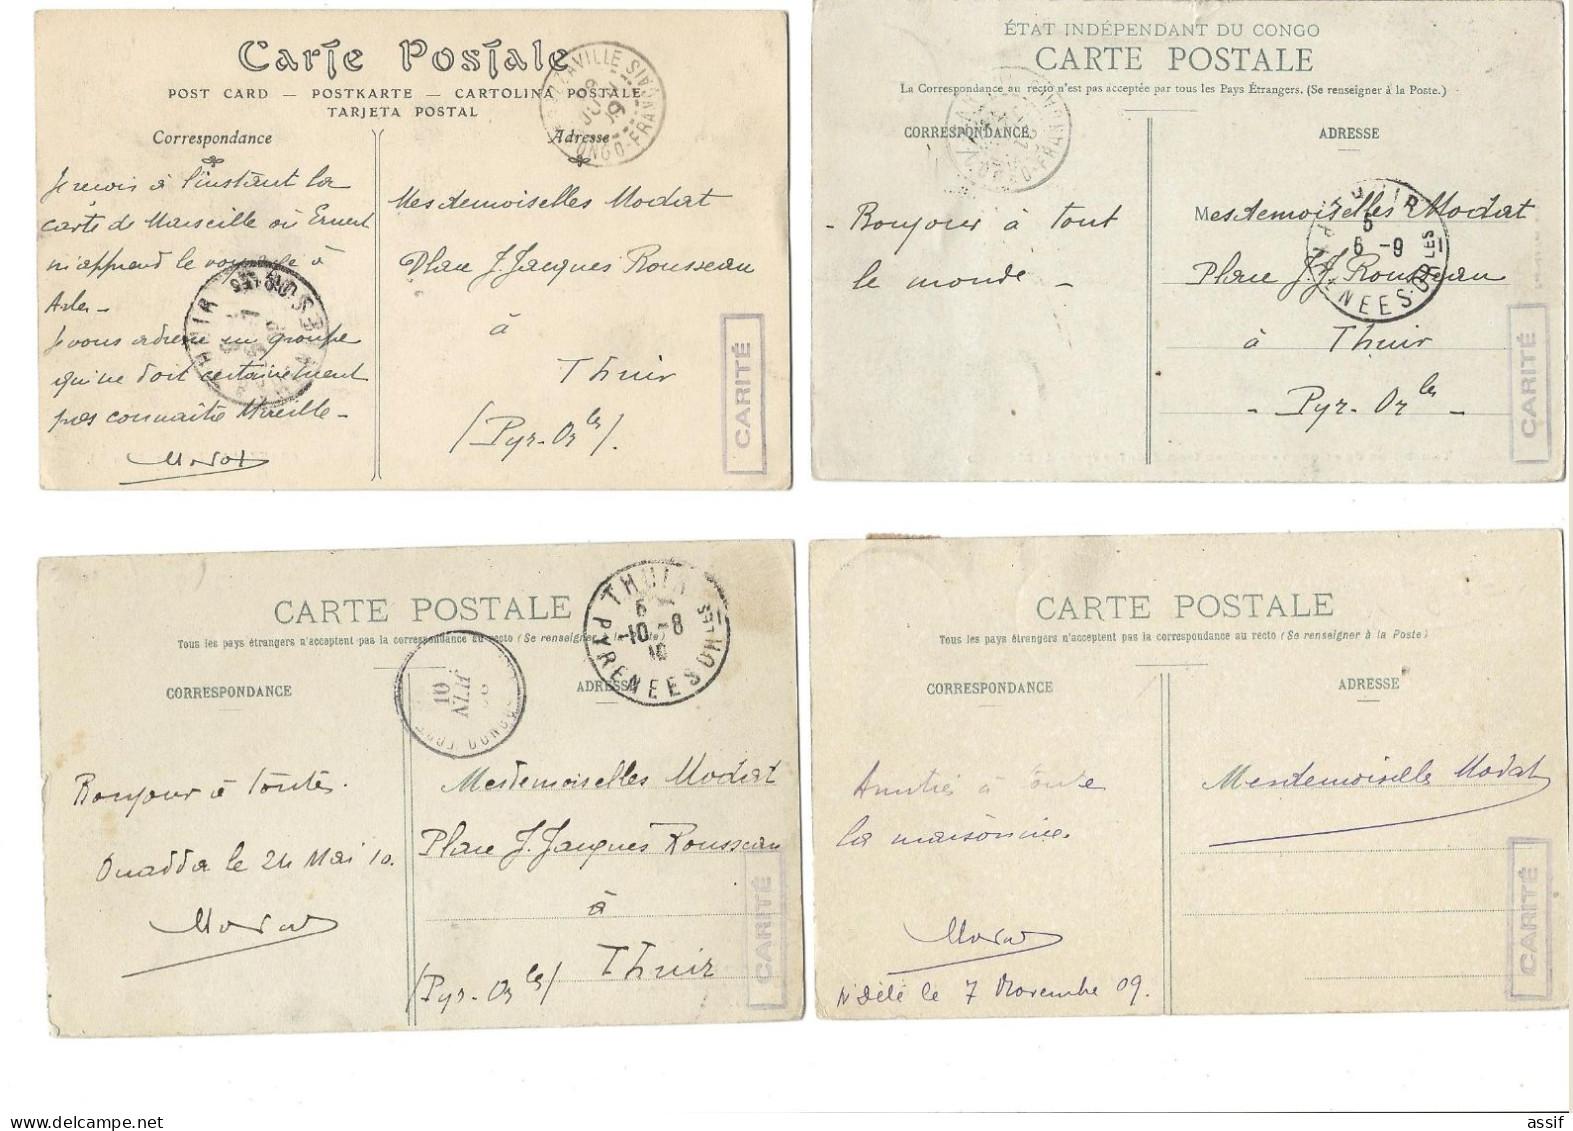 Carte Postale
POST CARD — POSTKARTE — CARTOLINA POSTALE
TARJETA POSTAL
Correspondance
Adresse
Je reçois à l'instant la
carte de Marseille où Ernest
m'apprend le voyage à
Arles -
Je vous adresse un groupe
qui ne doit certainement
pas connaître Mireille -
Modat
Mesdemoiselles Modat
Place J. Jacques Rousseau
à
Thuir
(Pyr-Or les).
CARITÉ
ÉTAT INDÉPENDANT DU CONGO
CARTE POSTALE
La Correspondance au recto n'est pas acceptée par tous les Pays Étrangers. (Se renseigner à la Poste.)
CORRESPONDANCE
ADRESSE
- Bonjour à tout
le monde -
Mesdemoiselles Modat
Place J.J. Rousseau
à Thuir
- Pyr-Or les -
CARITÉ
CARTE POSTALE
Tous les pays étrangers n'acceptent pas la correspondance au recto (Se renseigner à la Poste)
CORRESPONDANCE
ADRESSE
THUIR
6
10-8
10
PYRENEES ORLES
Bonjour à toutes.
Ouadda le 24 Mai 10.
Modat
Mesdemoiselles Modat
Place J. Jacques Rousseau
à
Thuir
(Pyr-Or les)
CARITÉ
CARTE POSTALE
Tous les pays étrangers n'acceptent pas la correspondance au recto (Se renseigner à la Poste)
CORRESPONDANCE
ADRESSE
Amitiés à toute
la maisonnée
Modat
N'Délé le 7 Novembre 09.
Mesdemoiselles Modat
CARITÉ
delcampe.net
assif